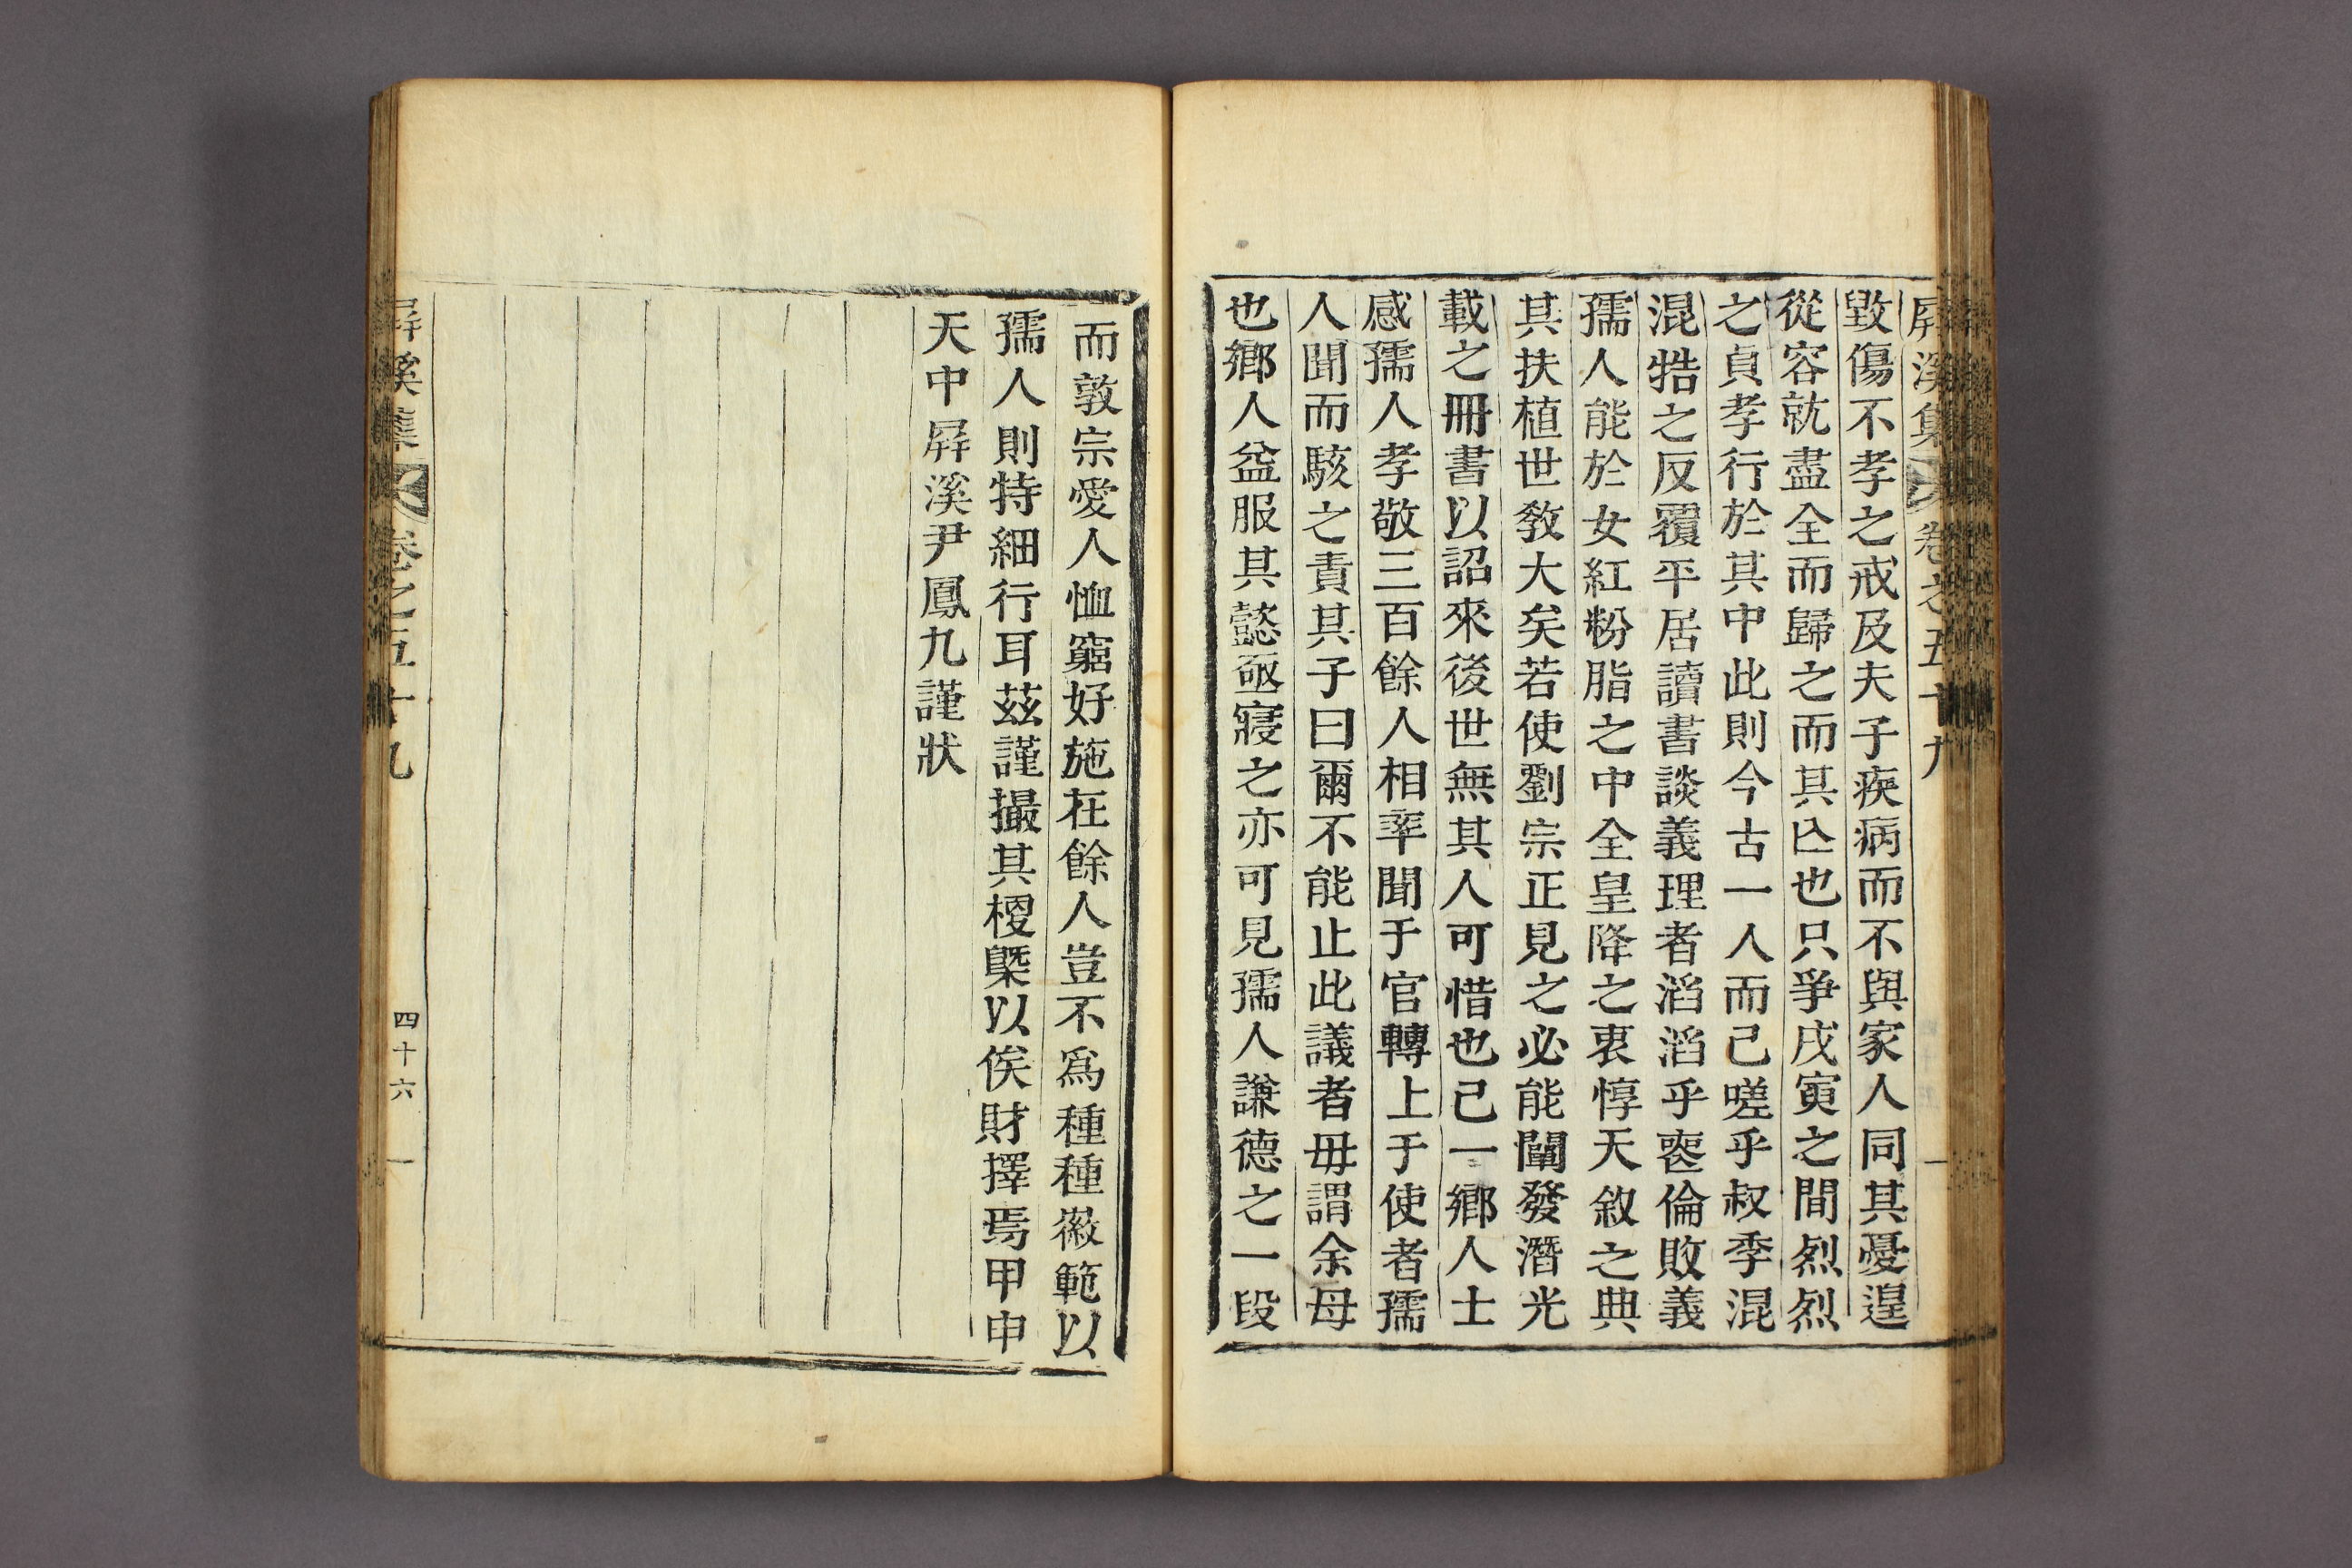 屛溪集 卷之五十九
毀傷不孝之戒及夫子疾病而不與家人同其憂遑
從容就盡全而歸之而其亾也只爭戌寅之間烈烈
之貞孝行於其中此則今古一人而已嗟乎叔季混
混牿之反覆平居讀書談義理者滔滔乎喪倫敗義
孺人能於女紅粉脂之中全皇降之衷惇天敘之典
其扶植世敎大矣若使劉宗正見之必能闡發潛光
載之冊書以詔來後世無其人可惜也已一鄉人士
感孺人孝敬三百餘人相率聞于官轉上于使者孺
人聞而駭之責其子曰爾不能止此議者毋謂余母
也鄉人益服其懿亟寢之亦可見孺人謙德之一段
而敦宗愛人恤窮好施在餘人豈不爲種種徽範以
孺人則特細行耳玆謹撮其梗槩以俟財擇焉甲申
天中屛溪尹鳳九謹狀
屛溪集 卷之五十九 四十六